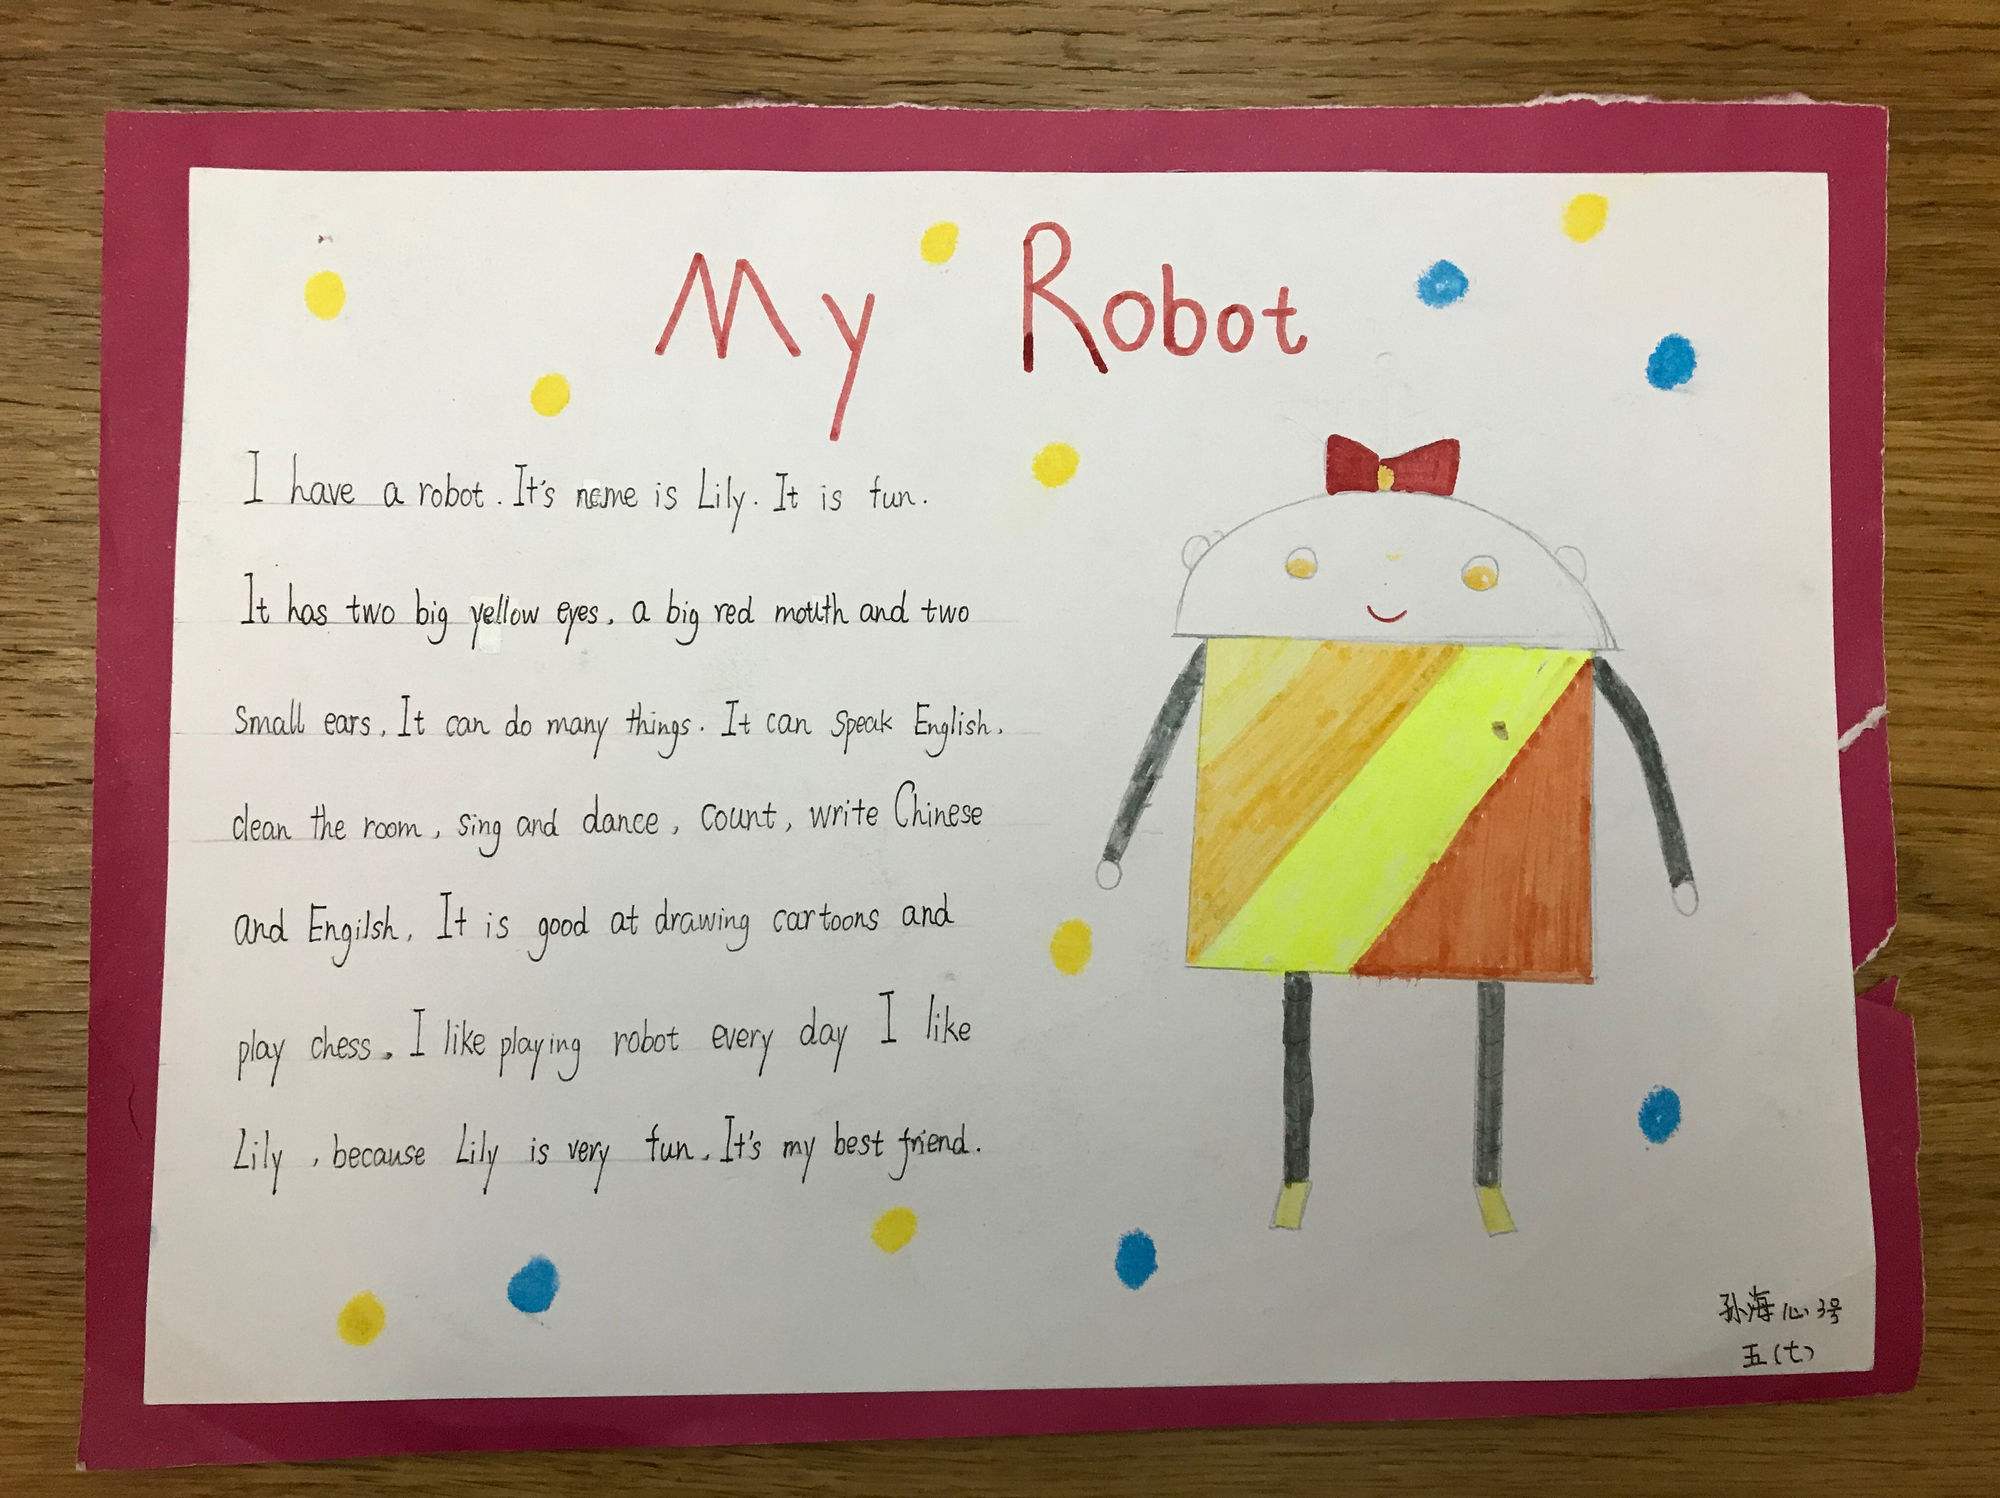 My Robot
I have a robot. It's name is Lily. It is fun.
It has two big yellow eyes, a big red mouth and two
small ears. It can do many things. It can speak English.
clean the room, sing and dance, count, write Chinese
and Engilsh. It is good at drawing cartoons and
play chess. I like playing robot every day I like
Lily , because Lily is very fun. It's my best friend.
孙海心 3号
五(七)